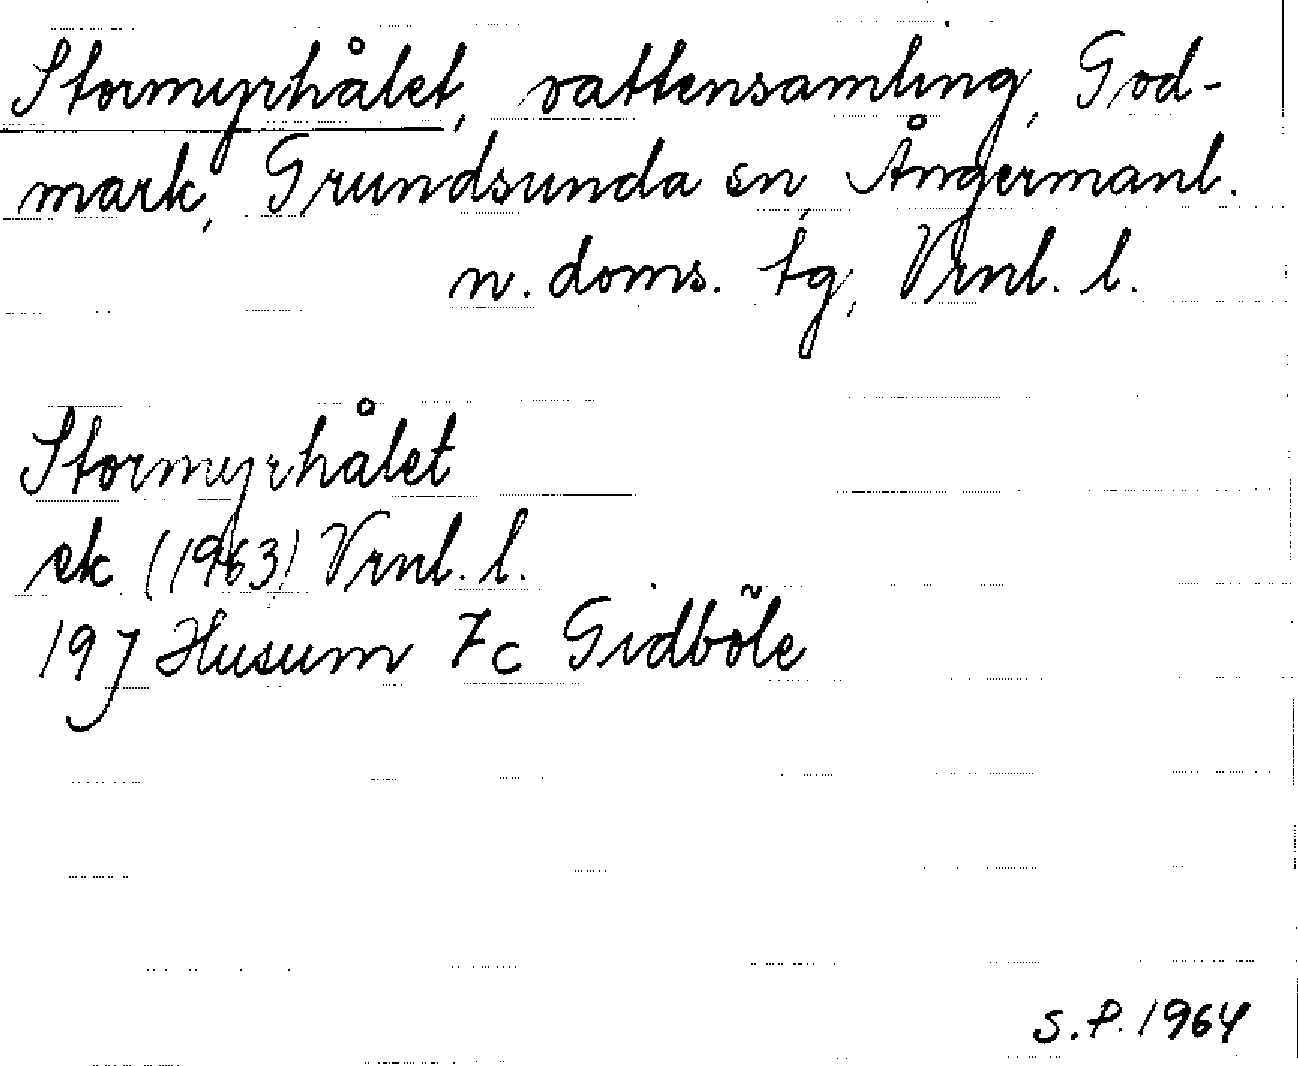 Stormyrhålet, vattensamling, God-
mark, Grundsunda sn, Ångermanl.
n. doms. tg, Vrnl. l.
Stormyrhålet
ek (1963) Vrnl. l.
19J Husum 7c Gidböle
S.P. 1964